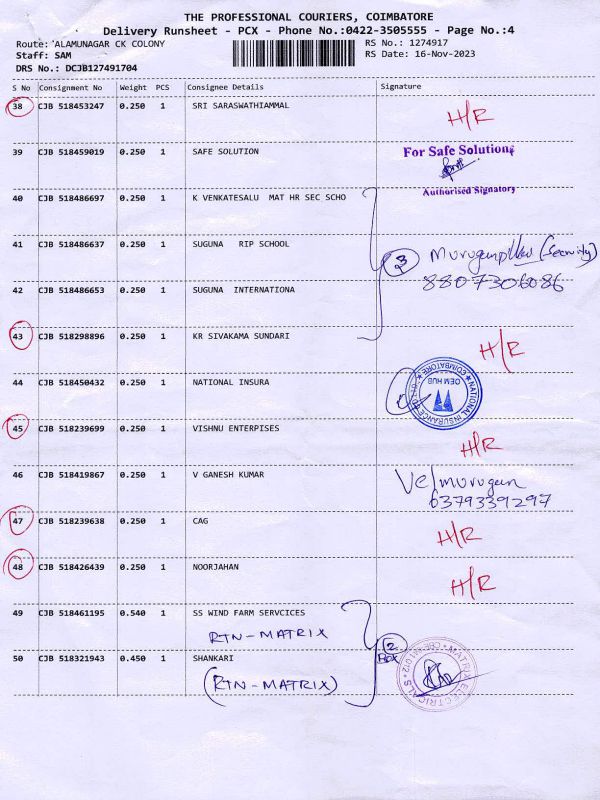 THE PROFESSIONAL COURIERS, COIMBATORE
Delivery Runsheet - PCX - Phone No.:0422-3505555 - Page No.:4
Route: ALAMUNAGAR CK COLONY
RS No.: 1274917
Staff: SAM
RS Date: 16-Nov-2023
DRS No.: DCJB127491704
S No Consignment No Weight PCS Consignee Details Signature
38 CJB 518453247 0.250 1 SRI SARASWATHIAMMAL H/R
39 CJB 518459019 0.250 1 SAFE SOLUTION For Safe Solutions
Authorised Signatory
40 CJB 518486697 0.250 1 K VENKATESALU MAT HR SEC SCHO
41 CJB 518486637 0.250 1 SUGUNA RIP SCHOOL 3 (Security)
8807306086
42 CJB 518486653 0.250 1 SUGUNA INTERNATIONA
43 CJB 518298896 0.250 1 KR SIVAKAMA SUNDARI H/R
44 CJB 518450432 0.250 1 NATIONAL INSURA
NATIONAL INSURANCE
OEM HUB
COIMBATORE
45 CJB 518239699 0.250 1 VISHNU ENTERPISES H/R
46 CJB 518419867 0.250 1 V GANESH KUMAR Velmurugan
03793391297
47 CJB 518239638 0.250 1 CAG H/R
48 CJB 518426439 0.250 1 NOORJAHAN H/R
49 CJB 518461195 0.540 1 SS WIND FARM SERVCICES
RTN-MATRIX
2
BOX
50 CJB 518321943 0.450 1 SHANKARI
(RTN-MATRIX)
MATRIX ELECTRICALS